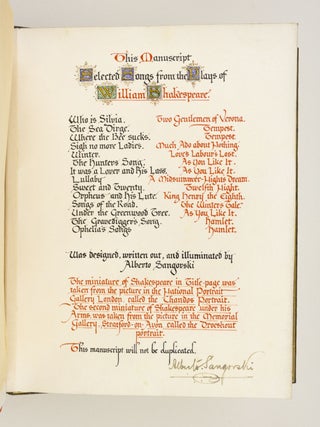 This Manuscript
Selected Songs from the Plays of
William Shakespeare.
Who is Silvia. Two Gentlemen of Verona.
The Sea Dirge. Tempest.
Where the Bee sucks. Tempest.
Sigh no more Ladies. Much Ado about Nothing.
Winter. Loves Labour's Lost.
The Hunters Song. As You Like It.
It was a Lover and his Lass. As You Like It.
Lullaby A Midsummer-Nights Dream.
Sweet and Twenty. Twelfth Night.
Orpheus and his Lute. King Henry the Eighth.
Songs of the Road. The Winters Tale.
Under the Greenwood Tree. As You Like It.
The Gravediggers Song. Hamlet.
Ophelia's Songs Hamlet.
Was designed, written out, and illuminated by
Alberto Sangorski
The miniature of Shakespeare in Title-page was
taken from the picture in the National Portrait
Gallery London, called the Chandos Portrait.
The second miniature of Shakespeare under his
Arms, was taken from the picture in the Memorial
Gallery, Stratford-on-Avon, called the Droeshout
portrait.
This manuscript will not be duplicated.
Alberto Sangorski